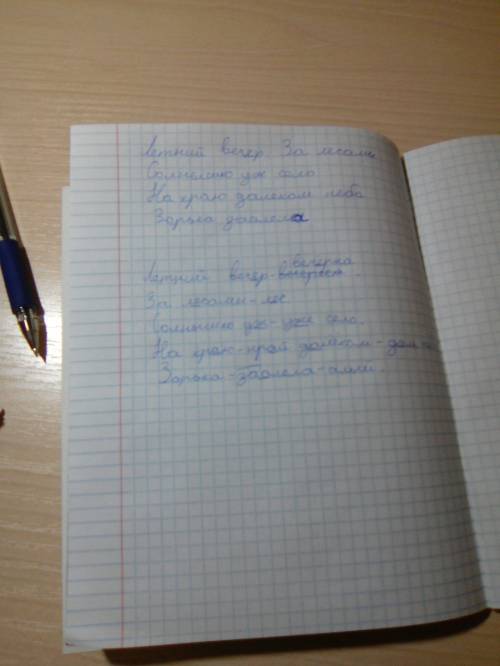 Летний вечер. За лесами
Солнышко уж село
На краю далеком неба
Зорька заалела
вечерка
Летний вечер-
За лесами-лес
Солнышко уж-уже село.
На краю-край далеком-
Зорька-заалела-